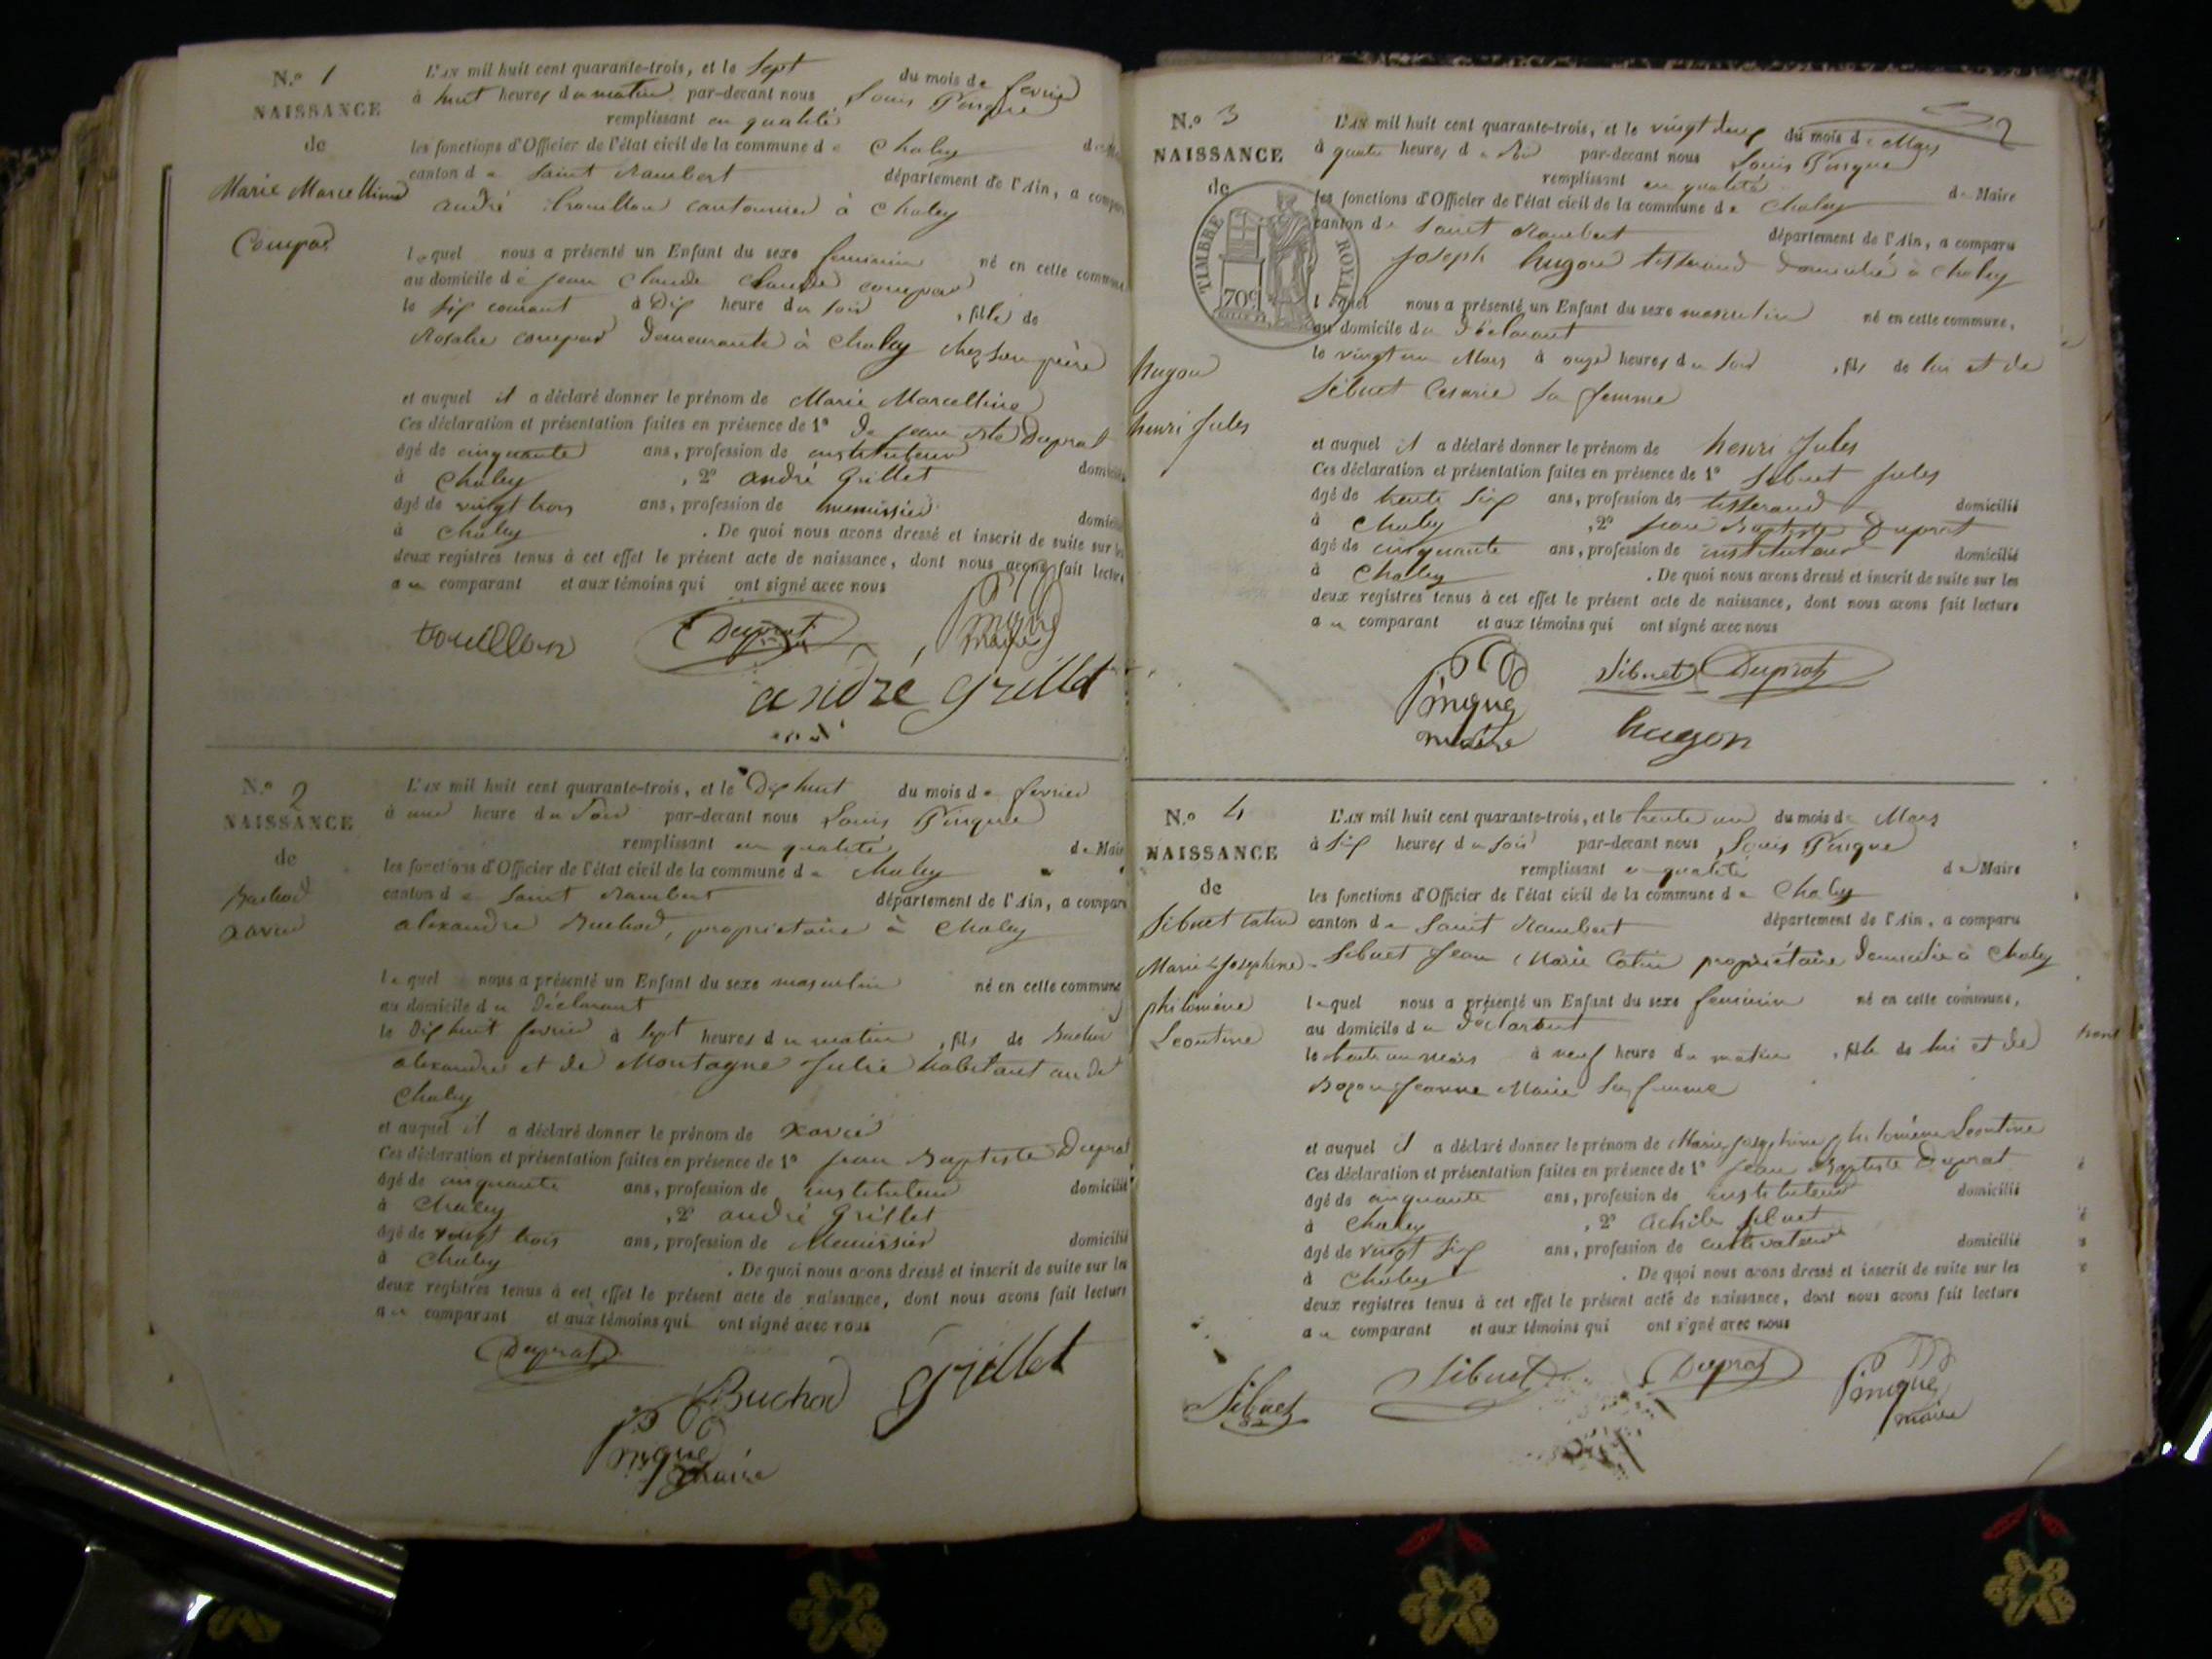 N.º 1
NAISSANCE
de
Marie Marcelline
Compas
L'AN mil huit cent quarante-trois, et le sept du mois de fevrier
à huit heures du matin par-devant nous Louis Pingue
remplissant en qualité
les fonctions d'Officier de l'état civil de la commune de Chaley
canton de Saint Rambert département de l'Ain, a compar
andré cantonnier à Chaley
lequel nous a présenté un Enfant du sexe feminin né en cette commune
au domicile de jean Claude
le six courant à Dix heure du soir , fille de
Rosalie demeurante à Chaley chez son père
et auquel il a déclaré donner le prénom de Marie Marcelline
Ces déclaration et présentation faites en présence de 1º de jean Bte Duprat
âgé de cinquante ans, profession de instituteur
à Chaley , 2º andré Grillet domicilié
âgé de vingt trois ans, profession de menuisier
à Chaley . De quoi nous avons dressé et inscrit de suite sur les
deux registres tenus à cet effet le présent acte de naissance, dont nous avons fait lecture
au comparant et aux témoins qui ont signé avec nous
touillon Duprat Pingue maire
andré grillet
N.º 2
NAISSANCE
de
Buchod
xavier
L'AN mil huit cent quarante-trois, et le Dix huit du mois de fevrier
à une heure du soir par-devant nous Louis Pingue
remplissant en qualité de Maire
les fonctions d'Officier de l'état civil de la commune de Chaley
canton de Saint Rambert département de l'Ain, a comparu
alexandre Buchod, propriétaire à Chaley
lequel nous a présenté un Enfant du sexe masculin né en cette commune
au domicile du Déclarant
le Dix huit fevrier à sept heures du matin , fils de Buchod
alexandre et de Montagne Julie habitant audit
Chaley
et auquel il a déclaré donner le prénom de xavier
Ces déclaration et présentation faites en présence de 1º jean Baptiste Duprat
âgé de cinquante ans, profession de instituteur domicilié
à Chaley , 2º andré Grillet
âgé de vingt trois ans, profession de Menuisier domicilié
à Chaley . De quoi nous avons dressé et inscrit de suite sur les
deux registres tenus à cet effet le présent acte de naissance, dont nous avons fait lecture
au comparant et aux témoins qui ont signé avec nous
Duprat
Buchod grillet
Pingue
maire
2
N.º 3
NAISSANCE
de
TIMBRE ROYAL
70c
hugon
henri Jules
L'AN mil huit cent quarante-trois, et le vingt deux du mois de Mars
à quatre heures du soir par-devant nous Louis Pingue
remplissant en qualité de Maire
les fonctions d'Officier de l'état civil de la commune de Chaley
canton de Saint Rambert département de l'Ain, a comparu
Joseph hugon tisserand domicilié à Chaley
lequel nous a présenté un Enfant du sexe masculin né en cette commune,
au domicile du déclarant
le vingt un Mars à onze heures du soir , fils de lui et de
Sibuet Cesarie sa femme
et auquel il a déclaré donner le prénom de henri Jules
Ces déclaration et présentation faites en présence de 1º Sibuet Jules
âgé de trente six ans, profession de tisserand domicilié
à Chaley , 2º jean Baptiste Duprat
âgé de cinquante ans, profession de instituteur domicilié
à Chaley . De quoi nous avons dressé et inscrit de suite sur les
deux registres tenus à cet effet le présent acte de naissance, dont nous avons fait lecture
au comparant et aux témoins qui ont signé avec nous
Pingue Sibuet Duprat
maire hugon
N.º 4
NAISSANCE
de
Sibuet Catin
Marie Josephine
philomène
Leontine
L'AN mil huit cent quarante-trois, et le trente un du mois de Mars
à six heures du soir par-devant nous Louis Pingue
remplissant en qualité de Maire
les fonctions d'Officier de l'état civil de la commune de Chaley
canton de Saint Rambert département de l'Ain, a comparu
Sibuet Jean Marie Catin propriétaire domicilié à Chaley
lequel nous a présenté un Enfant du sexe feminin né en cette commune,
au domicile du déclarant
le trente un mars à neuf heure du matin , fille de lui et de
Bozon Jeanne Marie sa femme
et auquel il a déclaré donner le prénom de Marie Josephine philomène Leontine
Ces déclaration et présentation faites en présence de 1º jean Baptiste Duprat
âgé de cinquante ans, profession de instituteur domicilié
à Chaley , 2º achile Sibuet
âgé de vingt six ans, profession de cultivateur domicilié
à Chaley . De quoi nous avons dressé et inscrit de suite sur les
deux registres tenus à cet effet le présent acte de naissance, dont nous avons fait lecture
au comparant et aux témoins qui ont signé avec nous
Sibuet Sibuet Duprat Pingue
maire